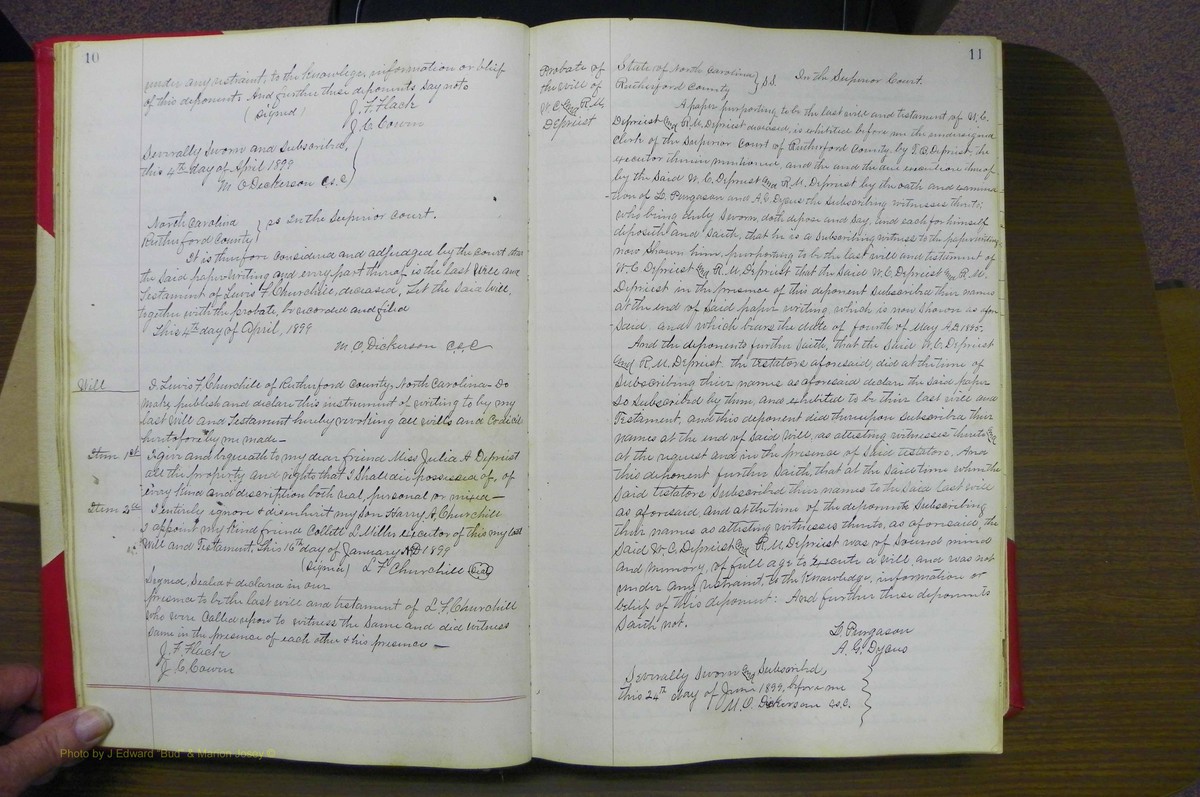 10
under any restraint, to the knowledge, information or belief
of this deponent. And further these deponents say not.
(Signed) J. F. Flack
J. C. Cowin
Severally Sworn and Subscribed,
this 4th day of April 1899
M. O. Dickerson C.S.C.
North Carolina } ss In the Superior Court.
Rutherford County
It is therefore considered and adjudged by the court that
the Said paper-writing and every part thereof is the last Will and
Testament of Lewis F. Churchill, deceased. Let the Said Will,
together with the probate, be recorded and filed
This 4th day of April, 1899
M. O. Dickerson C.S.C.
Will
I Lewis F. Churchill of Rutherford County, North Carolina - Do
make publish and declare this instrument of writing to by my
last will and Testament hereby revoking all wills and Codicils
heretofore by me made -
Item 1st I give and bequeath to my dear friend Miss Julia A Depriest
all the property and rights that I Shall die possessed of, of
every kind and description both real, personal or mixed -
Item 2nd I entirely ignore & disenherit my Son Harry A. Churchill
I appoint my kind friend L Miller executor of this my last
Will and Testament. This 16th day of January AD 1899
(Signed) L. F. Churchill Seal
Signed Sealed & declared in our
presence to be the last will and testament of L. F. Churchill
who were Called upon to witness the Same and did witness
Same in the presence of each other & his presence -
J. F. Flack
J. C. Cowin
11
Probate of
the will of
W C and R. M.
Depriest
State of North Carolina } SS. In the Superior Court.
Rutherford County
A paper purporting to be the last will and testament of W. C.
Depriest and R. M. Depriest deceased, is exhibited before me the undersigned
Clerk of the Superior Court of Rutherford County, by Depriest, the
executor therein mentioned, and the and the due execution thereof
by the Said W. C. Depriest and R. M. Depriest by the oath and examina
-tion of Pergason and A. G. Dycus the Subscribing witnesses thereto;
who being duly Sworn, doth depose and Say, and each for himself
deposeth and Saith, that he is a Subscribing witness to the paper writing
now Shown him, purporting to be the last will and testament of
W. C. Depriest and R. M. Depriest that the Said W. C. Depriest and R. M.
Depriest in the presence of this deponent Subscribed their names
at the end of Said paper writing, which is now Shown as afore
-Said. and which bears the date of fourth of May A.D. 1895.
And the deponents further Saith, that the Said W. C. Depriest
and R. M. Depriest. the testators aforesaid, did at the time of
Subscribing their names as aforesaid declare the Said paper
So Subscribed by them, and exhibited to be their last will and
Testament, and this deponent did thereupon Subscribe their
names at the end of Said will, as attesting witnesses thereto and
at the request and in the presence of Said testators. And
this deponent further Saith, that at the Said time when the
Said testators Subscribed their names to the Said last will
as aforesaid and at the time of the deponents Subscribing
their names as attesting witnesses thereto, as aforesaid, the
Said W C. Depriest and R. M Depriest was of Sound mind
and memory, of full age to Execute a will, and was not
under any restraint, to the knowledge, information or
belief of this deponent: And further these deponents
Saith not.
Pergason
A. G. Dycus
Severally Sworn and Subscribed,
this 24th day of June 1899, before me
M. O. Dickerson C.S.C.
Photo by J Edward "Bud" & Marion Josey ©